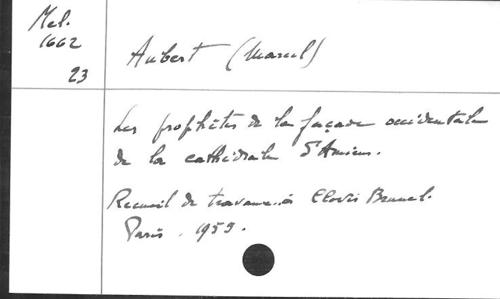 Mel.
1662
23
Aubert (Marcel)
Les prophètes de la façade occidentale
de la cathédrale d'Amiens.
Recueil de travaux..à Clovis Brunel.
Paris. 1955.